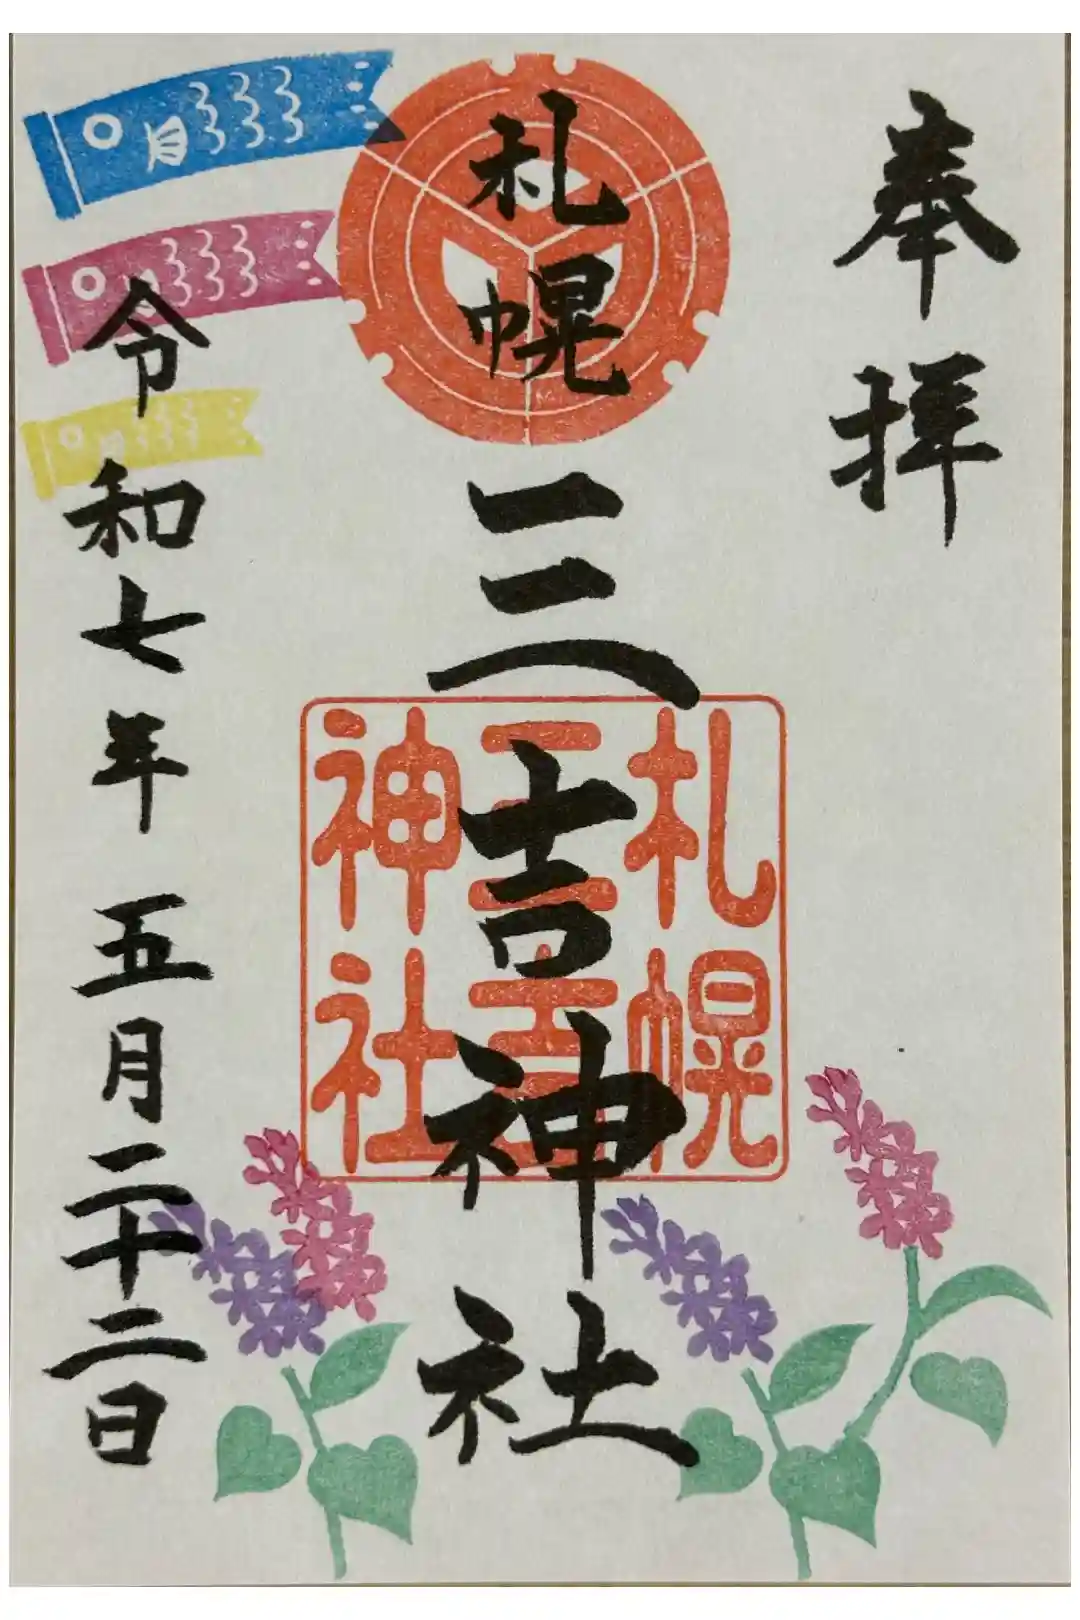 奉拝
札幌三吉神社
札幌
三吉
神社
令和七年五月二十二日